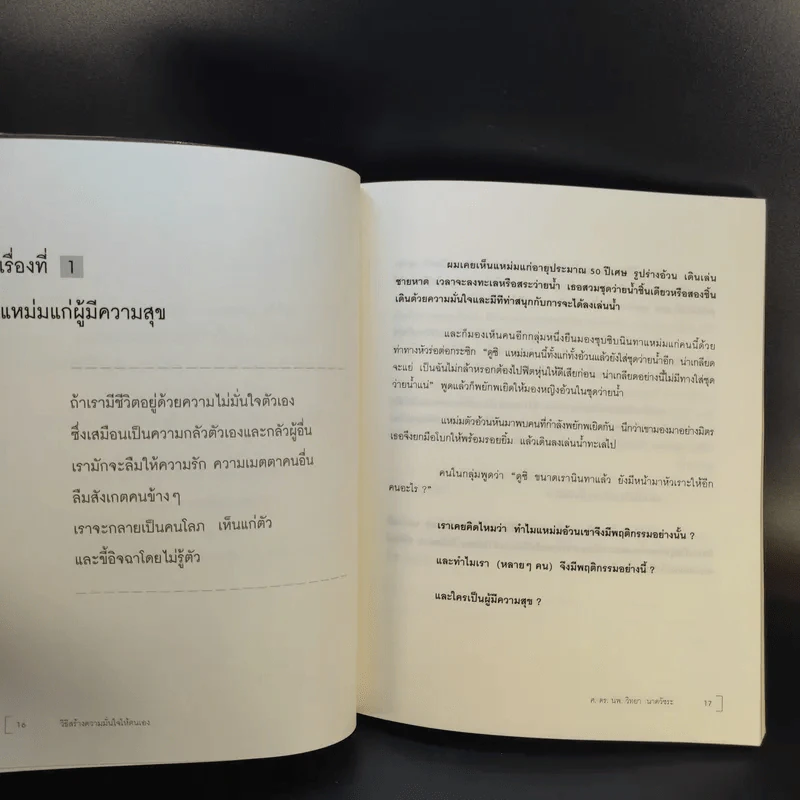 เรื่องที่ 1
แหม่มแก่ผู้มีความสุข
ถ้าเรามีชีวิตอยู่ด้วยความไม่มั่นใจตัวเอง
ซึ่งเสมือนเป็นความกลัวตัวเองและกลัวผู้อื่น
เรามักจะลืมให้ความรัก ความเมตตาคนอื่น
ลืมสังเกตคนข้างๆ
เราจะกลายเป็นคนโลภ เห็นแก่ตัว
และขี้อิจฉาโดยไม่รู้ตัว
16 วิธีสร้างความมั่นใจให้ตนเอง
ผมเคยเห็นแหม่มแก่อายุประมาณ 50 ปีเศษ รูปร่างอ้วน เดินเล่น
ชายหาด เวลาจะลงทะเลหรือสระว่ายน้ำ เธอสวมชุดว่ายน้ำชิ้นเดียวหรือสองชิ้น
เดินด้วยความมั่นใจและมีทีท่าสนุกกับการจะได้ลงเล่นน้ำ
และก็มองเห็นคนอีกกลุ่มหนึ่งยืนมองซุบซิบนินทาแหม่มแก่คนนี้ด้วย
ท่าทางหัวร่อต่อกระซิก "ดูซิ แหม่มคนนี้ทั้งแก่ทั้งอ้วนแล้วยังใส่ชุดว่ายน้ำอีก น่าเกลียด
จะแย่ เป็นฉันไม่กล้าหรอกต้องไปฟิตหุ่นให้ดีเสียก่อน น่าเกลียดอย่างนี้ไม่มีทางใส่ชุด
ว่ายน้ำแน่" พูดแล้วก็พยักพเยิดให้มองหญิงอ้วนในชุดว่ายน้ำ
แหม่มตัวอ้วนหันมาพบคนที่กำลังพยักพเยิดกัน นึกว่าเขามองมาอย่างมิตร
เธอจึงยกมือโบกให้พร้อมรอยยิ้ม แล้วเดินลงเล่นน้ำทะเลไป
คนในกลุ่มพูดว่า "ดูซิ ขนาดเรานินทาแล้ว ยังมีหน้ามาหัวเราะให้อีก
คนอะไร ?"
เราเคยคิดไหมว่า ทำไมแหม่มอ้วนเขาจึงมีพฤติกรรมอย่างนั้น ?
และทำไมเรา (หลายๆ คน) จึงมีพฤติกรรมอย่างนี้ ?
และใครเป็นผู้มีความสุข ?
ศ. ดร. นพ. วิทยา นาควัชระ 17